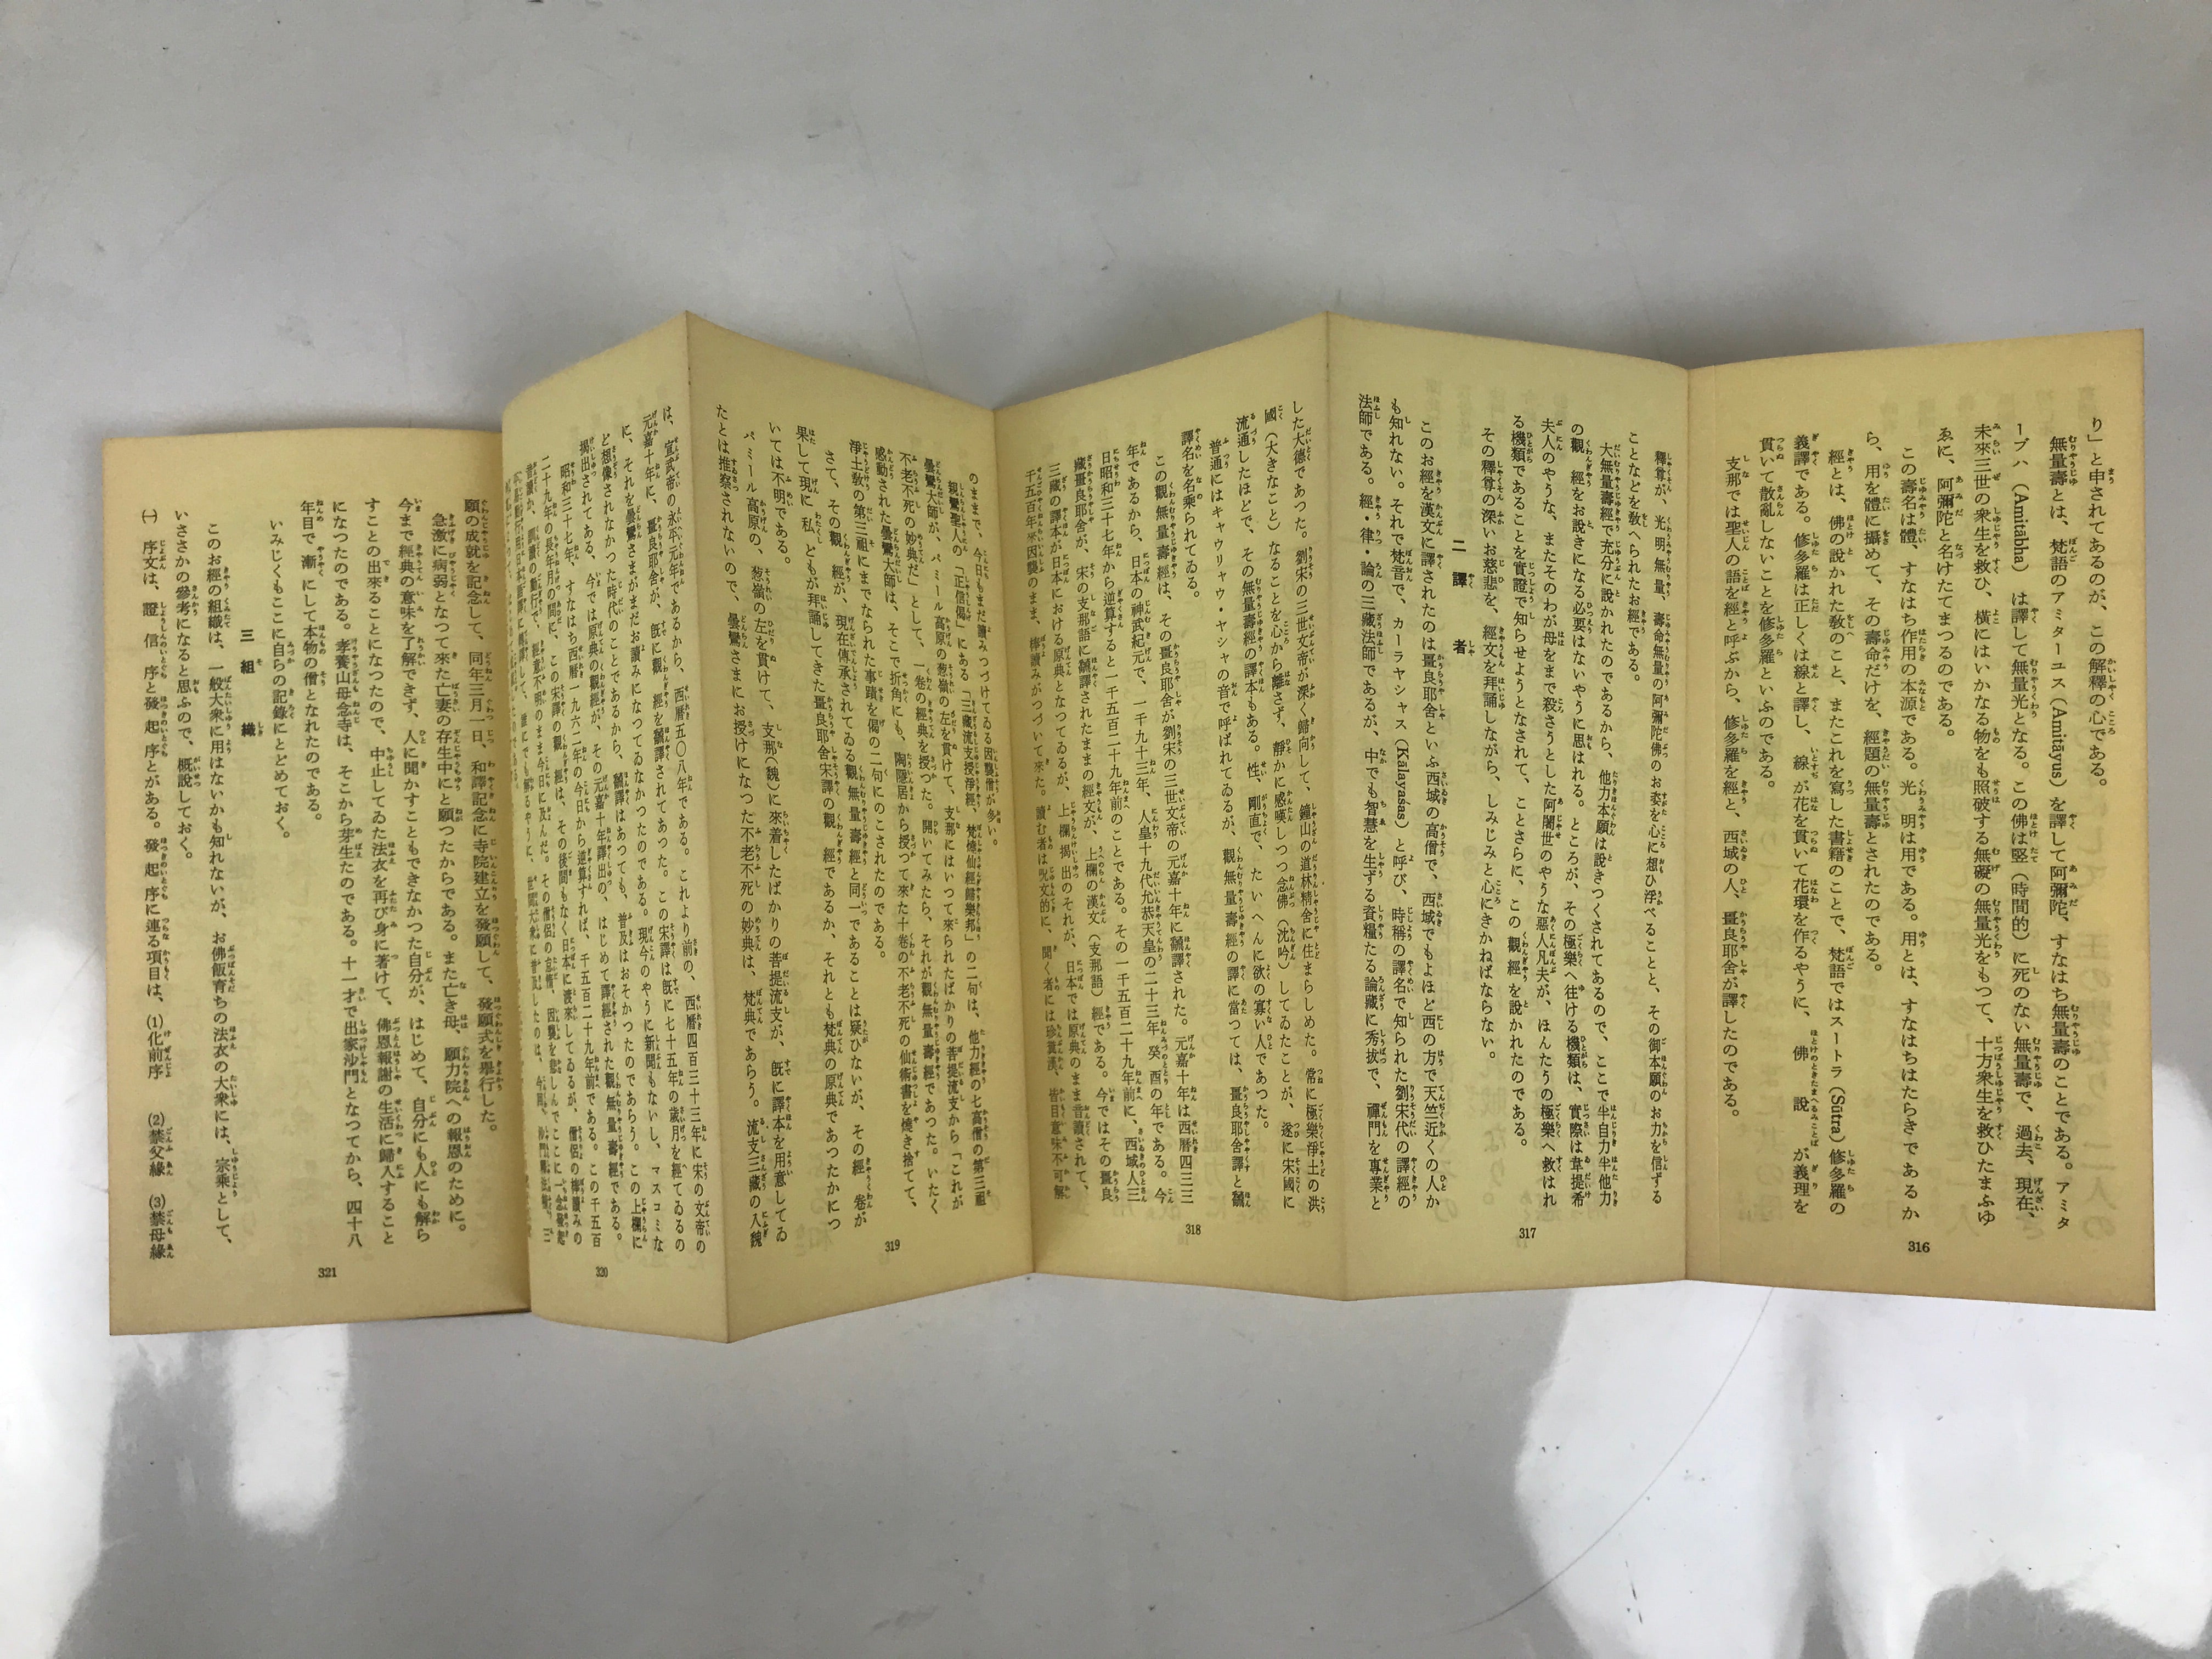 り」と申されてあるのが、この解釋の心である。
無量壽とは、梵語のアミターユス（Amitāyus）を譯して阿彌陀、すなはち無量壽のことである。アミタ
ーブハ（Amitābha）は譯して無量光となる。この佛は竪（時間的）に死のない無量壽で、過去、現在、
未來三世の衆生を救ひ、橫にはいかなる物をも照破する無礙の無量光をもつて、十方衆生を救ひたまふゆ
ゑに、阿彌陀と名けたてまつるのである。
この壽名は體、すなはち作用の本源である。光明は用である。用とは、すなはちはたらきであるか
ら、用を體に攝めて、その壽命だけを、經題の無量壽とされたのである。
經とは、佛の說かれた敎のこと、またこれを寫した書籍のことで、梵語ではスートラ（Sūtra）修多羅の
義譯である。修多羅は正しくは線と譯し、線が花を貫いて花環を作るやうに、佛說が義理を
貫いて散亂しないことを修多羅といふのである。
支那では聖人の語を經と呼ぶから、修多羅を經と、西域の人、畺良耶舍が譯したのである。
316
釋尊が、光明無量、壽命無量の阿彌陀佛のお姿を心に想ひ浮べることと、その御本願のお力を信ずる
ことなどを敎へられたお經である。
大無量壽經で充分に說かれたのであるから、他力本願は說きつくされてあるので、ここで半自力半他力
の觀經をお說きになる必要はないやうに思はれる。ところが、その極樂へ往ける機類は、實際は韋提希
夫人のやうな、またそのわが母をまで殺さうとした阿闍世のやうな惡人凡夫が、ほんたうの極樂へ救はれ
る機類であることを實證で知らせようとなされて、ことさらに、この觀經を說かれたのである。
その釋尊の深いお慈悲を、經文を拜誦しながら、しみじみと心にきかねばならない。
二 譯 者
このお經を漢文に譯されたのは畺良耶舍といふ西域の高僧で、西域でもよほど西の方で天竺近くの人か
も知れない。それで梵音で、カーラヤシャス（Kālayasas）と呼び、時稱の譯名で知られた劉宋代の譯經の
法師である。經・律・論の三藏法師であるが、中でも智慧を生ずる資糧たる論藏に秀拔で、禪門を專業と
317
した大德であつた。劉宋の三世文帝が深く歸向して、鐘山の道林精舍に住まらしめた。常に極樂淨土の洪
國（大きなこと）なることを心から離さず、靜かに感嘆しつつ念佛（沈吟）してゐたことが、遂に宋國に
流通したほどで、その無量壽經の譯本もある。性、剛直で、たいへんに欲の寡い人であつた。
普通にはキャウリャウ・ヤシャの音で呼ばれてゐるが、觀無量壽經の譯に當つては、畺良耶舍譯と飜
譯名を名乘られてゐる。
この觀無量壽經は、その畺良耶舍が劉宋の三世文帝の元嘉十年に飜譯された。元嘉十年は西曆四三三
年であるから、日本の神武紀元で、一千九十三年、人皇十九代允恭天皇の二十三年癸酉の年である。今
日昭和三十七年から逆算すると一千五百二十九年前のことである。その一千五百二十九年前に、西域人三
藏畺良耶舍が、宋の支那語に飜譯されたままの經文が、上欄の漢文（支那語）經である。今ではその畺良
三藏の譯本が日本における原典となつてゐるが、上欄揭出のそれが、日本では原典のまま音讀されて、
千五百年來因襲のまま、棒讀みがつづいて來た。讀む者は呪文的に、聞く者には珍糞漢、皆目意味不可解
318
のままで、今日もまだ讀みつづけてゐる因襲僧が多い。
親鸞聖人の「正信偈」にある「三藏流支授淨經、梵燒仙經歸樂邦」の二句は、他力經の七高僧の第三祖
曇鸞大師が、パミール高原の葱嶺の左を貫けて、支那にはいつて來られたばかりの菩提流支から「これが
不老不死の妙典だ」として、一卷の經典を授つた。開いてみたら、それが觀無量壽經であつた。いたく
感動された曇鸞大師は、そこで折角にも、陶隱居から授つて來た十卷の不老不死の仙術書を燒き捨てて、
淨土敎の第三祖にまでなられた事蹟を偈の二句にのこされたのである。
さて、その觀經が、現在傳承されてゐる觀無量壽經と同一であることは疑ひないが、その經卷が
果して現に私どもが拜誦してきた畺良耶舍宋譯の觀經であるか、それとも梵典の原典であつたかにつ
いては不明である。
パミール高原の、葱嶺の左を貫けて、支那（魏）に來着したばかりの菩提流支が、旣に譯本を用意してゐ
たとは推察されないので、曇鸞さまにお授けになつた不老不死の妙典は、梵典であらう。流支三藏の入魏
319
は、宣武帝の永平元年であるから、西曆五〇八年である。これより前の、西曆四百三十三年に宋の文帝の
元嘉十年に、畺良耶舍が、旣に觀經を飜譯されてあつた。この宋譯は旣に七十五年の歲月を經てゐるの
に、それを曇鸞さまがまだお讀みになつてゐなかつたのである。現今のやうに新聞もないし、マスコミな
ど想像されなかつた時代のことであるから、飜譯はあつても、普及はおそかつたのであらう。この上欄に
揭出されてある、今では原典の觀經が、その元嘉十年譯出の、はじめて譯經された觀無量壽經である。
昭和三十七年、すなはち西曆一九六二年の今日から逆算すれば、千五百二十九年前である。この千五百
二十九年の長年月の間に、この宋譯の觀經は、その後間もなく日本に渡來してゐるが、僧侶の棒讀みの
音讀か、訓讀の勤行で、經意不明のまま今日に及んだ。その僧侶の怠惰、因襲を悲しんでここに一念發起
320
願の成就を記念して、同年三月一日、和譯記念に寺院建立を發願して、發願式を擧行した。
急激に病弱となつて來た亡妻の存生中にと願つたからである。また亡き母、願力院への報恩のために。
今まで經典の意味を了解できず、人に聞かすこともできなかつた自分が、はじめて、自分にも人にも解ら
すことの出來ることになつたので、中止してゐた法衣を再び身に著けて、佛恩報謝の生活に歸入すること
になつたのである。孝養山母念寺は、そこから芽生たのである。十一才で出家沙門となつてから、四十八
年目で漸にして本物の僧となれたのである。
いみじくもここに自らの記錄にとどめておく。
三 組 織
このお經の組織は、一般大衆に用はないかも知れないが、お佛飯育ちの法衣の大衆には、宗乘として、
いささかの參考になると思ふので、槪說しておく。
㈠ 序文は、證信序と發起序とがある。發起序に連る項目は、⑴化前序 ⑵禁父緣 ⑶禁母緣
321